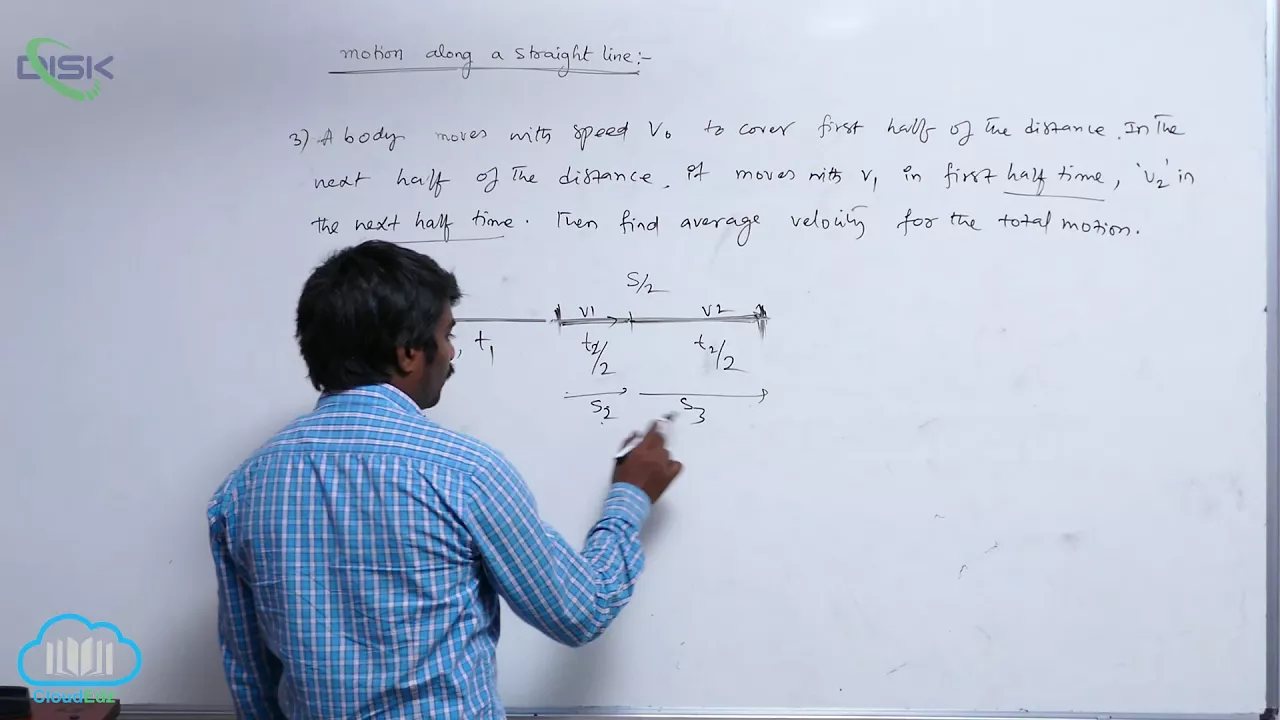 DISK
motion along a straight line:-
3) A body moves with speed V₀ to cover first half of the distance. In the
next half of the distance, it moves with v₁ in first half time, 'v₂' in
the next half time. Then find average velocity for the total motion.
S/2
v1 v2
, t₁ t₂/2 t₂/2
S₂ S₃
CloudEdz